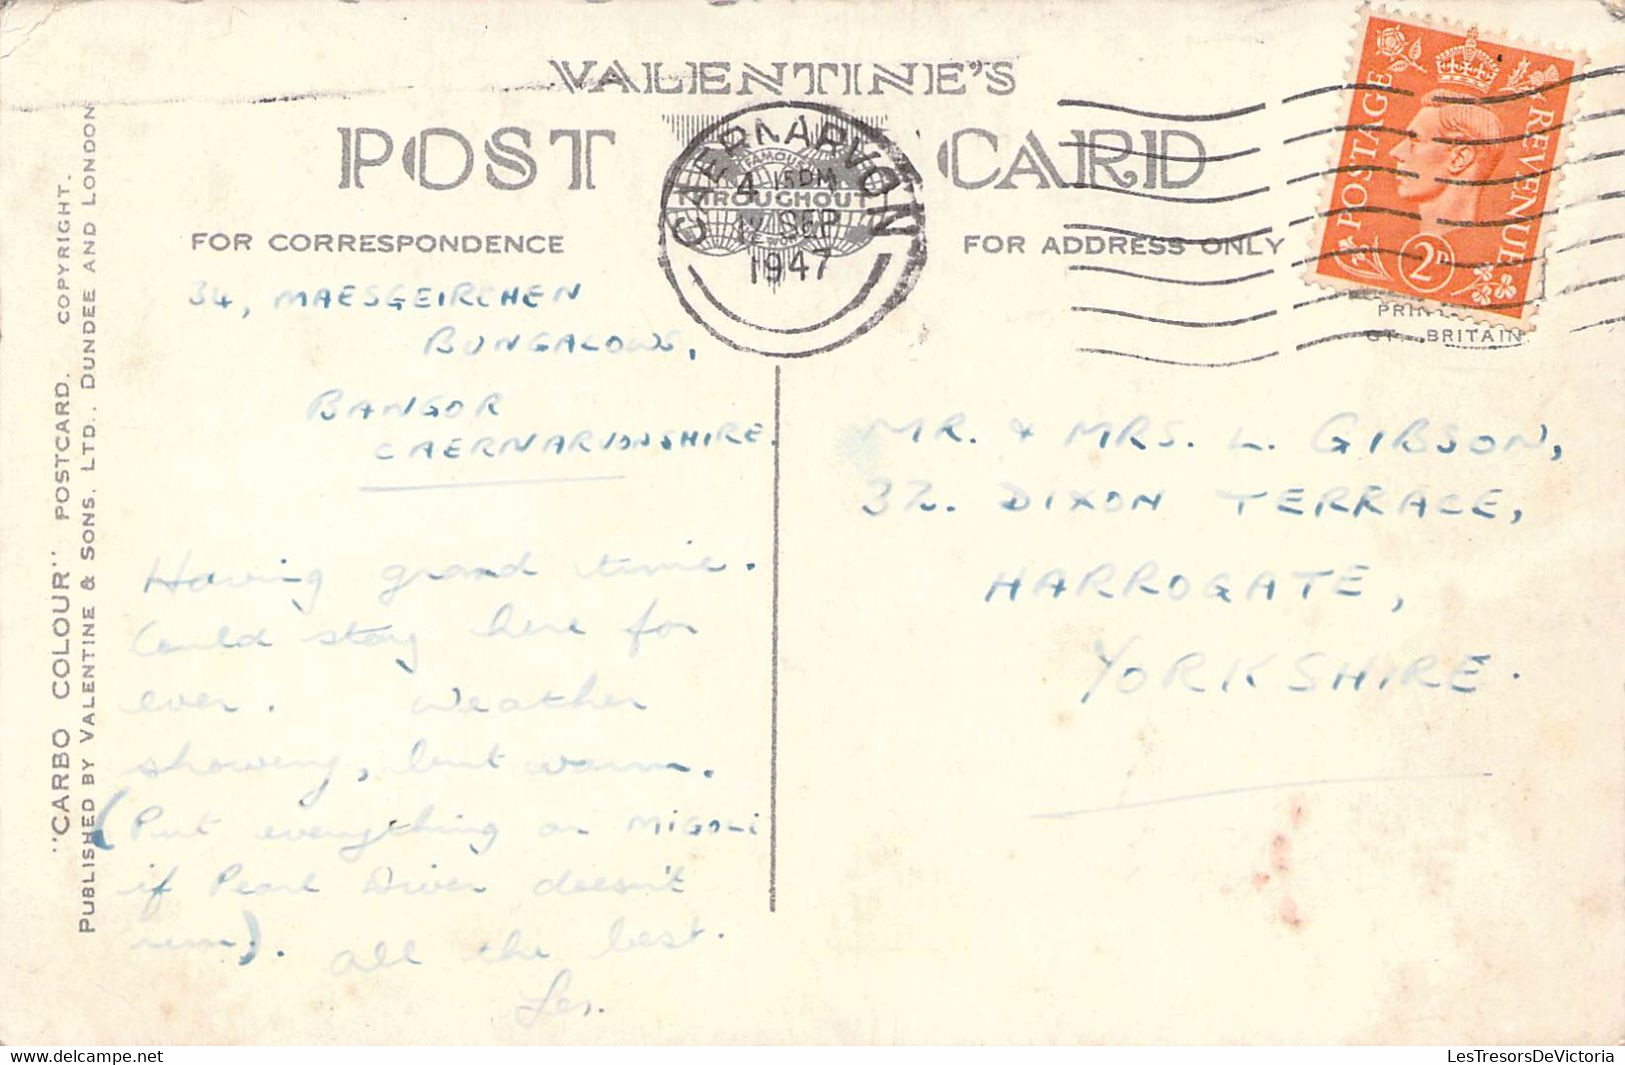 VALENTINE'S
POST CARD
FAMOUS
THROUGHOUT
CAERNARVON
4 15 PM
17 SEP
1947
POSTAGE REVENUE
2D
PRIN
GT. BRITAIN
FOR CORRESPONDENCE
FOR ADDRESS ONLY
"CARBO COLOUR" POSTCARD. COPYRIGHT.
PUBLISHED BY VALENTINE & SONS, LTD., DUNDEE AND LONDON
34, MAESGEIRCHEN
BUNGALOWS,
BANGOR
CAERNARVONSHIRE.
Having grand time.
Could stay here for
ever. Weather
showery, but warm.
(Put everything on MIGOLI
if Pearl Diver doesn't
run). All the best.
Les.
MR. & MRS. L. GIBSON,
32. DIXON TERRACE,
HARROGATE,
YORKSHIRE.
LesTresorsDeVictoria